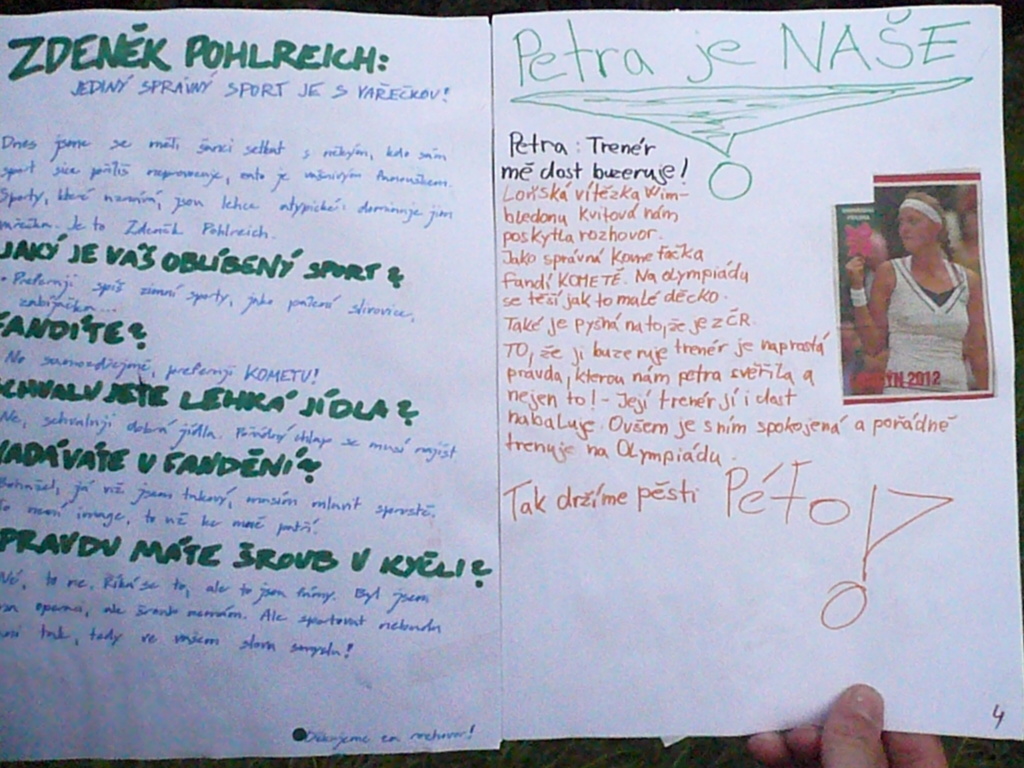 ZDENĚK POHLREICH:
JEDINÝ SPRÁVNÝ SPORT JE S VAŘEČKOU!
Dnes jsme se měli šanci setkat s někým, kdo sám
sport sice příliš neprovozuje, je vášnivým
Sporty, které uznává, jsou lehce atypické: dominuje jim
vařečka. Je to Zdeněk Pohlreich.
JAKÝ JE VÁŠ OBLÍBENÝ SPORT?
- Preferuji spíš zimní sporty, jako pálení slivovice,
zabíjačka...
FANDÍTE?
No samozdřejmě, preferuji KOMETU!
SCHVALUJETE LEHKÁ JÍDLA?
Ne, schvaluji dobrá jídla. Pořádný chlap se musí najíst.
NADÁVÁTE V FANDĚNÍ?
Bohužel, já už jsem takový, musím mluvit sprostě.
To není image, to už ke mně patří.
OPRAVDU MÁTE ŠROUB V KYČLI?
Né, to ne. Říká se to, ale to jsou fámy. Byl jsem
na operaci, ale šroub nemám. Ale sportovat nebudu
ani tak, tedy ve vašem slova smyslu!
Děkujeme za rozhovor!
Petra je NAŠE
Petra: Trenér
mě dost buzeruje!
Loňská vítězka Wim-
bledonu Kvitová nám
poskytla rozhovor.
Jako správná Kometačka
fandí KOMETĚ. Na olympiádu
se těší jak to malé děcko.
Také je pyšná na to, že je z ČR.
TO, že ji buzeruje trenér je naprostá
pravda, kterou nám petra svěřila a
nejen to! - Její trenér jí i dost
nabaluje. Ovšem je s ním spokojená a pořádně
trenuje na Olympiádu.
Tak držíme pěsti PéŤo!
YN 2012
4